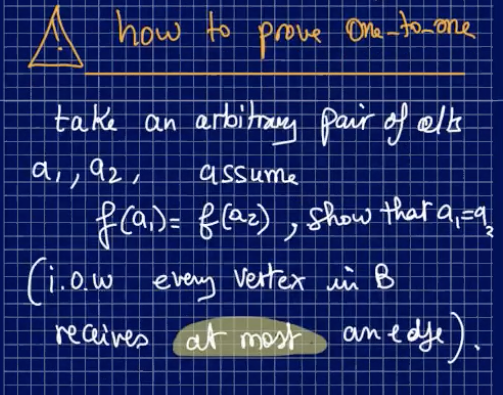 ! how to prove one-to-one
take an arbitrary pair of elts
a₁, a₂, assume
f(a₁) = f(a₂), show that a₁=a₂
(i.o.w every vertex in B
receives at most an edge).